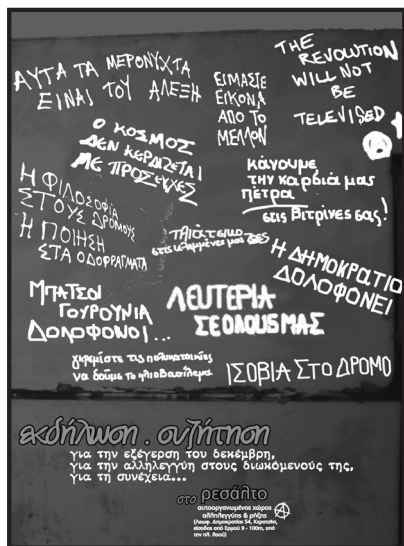 ΑΥΤΑ ΤΑ ΜΕΡΟΝΥΧΤΑ
ΕΙΝΑΙ ΤΟΥ ΑΛΕΞΗ
ΕΙΜΑΣΤΕ
ΕΙΚΟΝΑ
ΑΠΟ ΤΟ
ΜΕΛΛΟΝ
THE
REVOLUTION
WILL NOT
BE
TELEVISED
Ο ΚΟΣΜΟΣ
ΔΕΝ ΚΕΡΔΙΖΕΤΑΙ
ΜΕ ΠΡΟΣΕΥΧΕΣ
κάνουμε
την καρδιά μας
πέτρα
στις βιτρίνες σας!
Η ΦΙΛΟΣΟΦΙΑ
ΣΤΟΥΣ ΔΡΟΜΟΥΣ
Η ΠΟΙΗΣΗ
ΣΤΑ ΟΔΟΦΡΑΓΜΑΤΑ
πλιάτσικο
στις κλεμμένες μας ζωές
Η ΔΗΜΟΚΡΑΤΙΑ
ΔΟΛΟΦΟΝΕΙ
ΜΠΑΤΣΟΙ
ΓΟΥΡΟΥΝΙΑ
ΔΟΛΟΦΟΝΟΙ...
ΛΕΥΤΕΡΙΑ
ΣΕ ΟΛΟUS ΜΑΣ
γκρεμίστε τις πολυκατοικίες
να δούμε το ηλιοβασίλεμα
ΙΣΟΒΙΑ ΣΤΟ ΔΡΟΜΟ
εκδήλωση . συζήτηση
για την εξέγερση του δεκέμβρη,
για την αλληλεγγύη στους διωκόμενούς της,
για τη συνέχεια...
στο ρεσάλτο
αυτοοργανωμένος χώρος
αλληλεγγύης & ρήξης
(Λεωφ. Δημοκρατίας 54, Κερατσίνι,
είσοδος από Ερμού 9 - 100m, από
την πλ. Λαού)